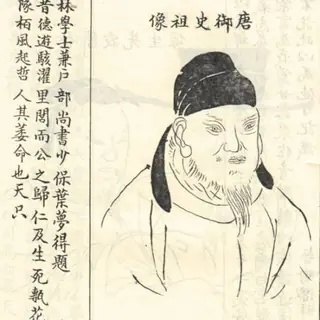 唐御史祖像
林學士兼戶部尚書少保葉夢得題
昔德遊駭濯里閭而公之歸仁及生死執花
隊栢風起哲人其萎命也天只